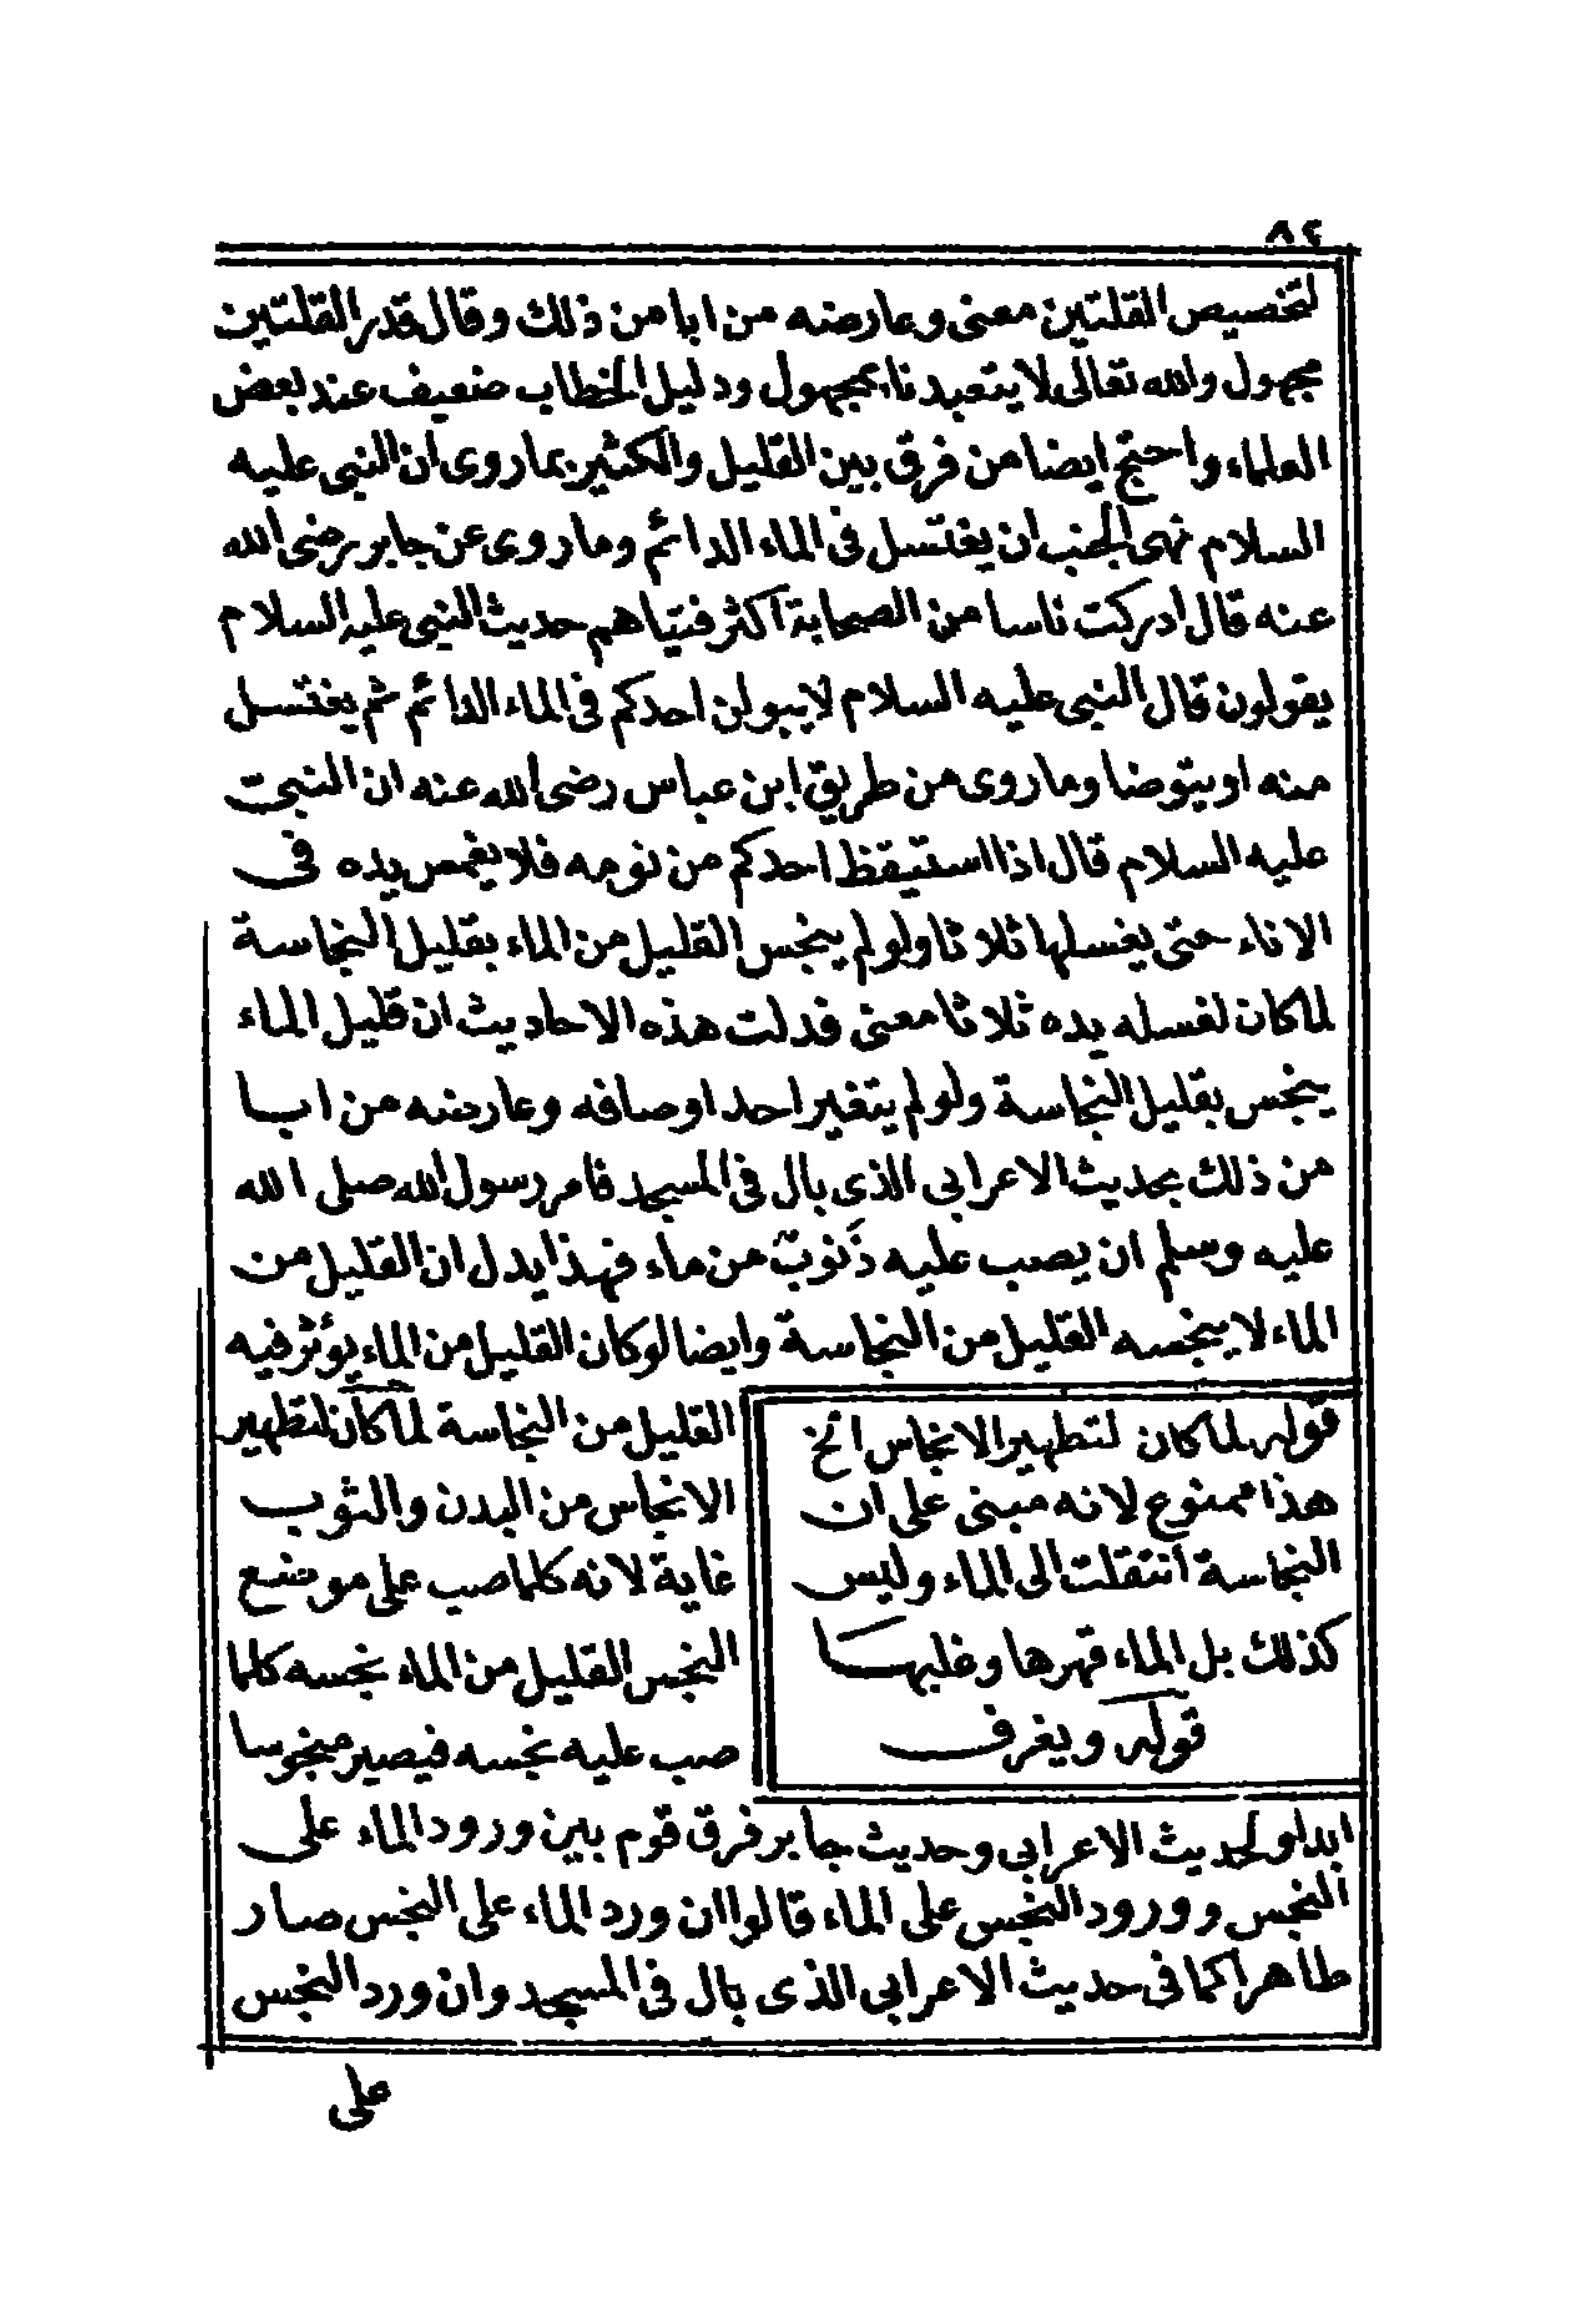 ٨٤
لتخصيص القلتين معنى وعارضه من ابا من ذلك وقال قدر القلتين
مجهول والله تعالى لا يتعبدنا بمجهول ودليل الخطاب ضعيف عند بعض
العلماء واحتج ايضا من فرق بين القليل والكثير بما روى ان النبى عليه
السلام نهى الجنب ان يغتسل فى الماء الدائم وما روى عن جابر رضى الله
عنه قال ادركت ناسا من الصحابة اكثر فتياهم حديث النبى عليه السلام
يقولون قال النبى عليه السلام لا يبولن احدكم فى الماء الدائم ثم يغتسل
منه او يتوضا وما روى من طريق ابن عباس رضى الله عنه ان النبى
عليه السلام قال اذا استيقظ احدكم من نومه فلا يغمس يده فى
الاناء حتى يغسلها ثلاثا ولو لم ينجس القليل من الماء بقليل النجاسة
لما كان لغسله يده ثلاثا معنى فدلت هذه الاحاديث ان قليل الماء
ينجس بقليل النجاسة ولو لم يتغير احد اوصافه وعارضه من ابا
من ذلك بحديث الاعرابى الذى بال فى المسجد فامر رسول الله صلى الله
عليه وسلم ان يصب عليه ذنوب من ماء فهذا يدل ان القليل من
الماء لا ينجسه القليل من النجاسة وايضا لو كان القليل من الماء يؤثر فيه
القليل من النجاسة لما كان لتطهير
الانجاس من البدن والثوب
غاية لانه كلما صب على موضع
النجس القليل من الماء نجسه كلما
صب عليه نجسه فيصير منجوسا
قوله لما كان لتطهير الانجاس الخ
هذا ممنوع لانه مبنى على ان
النجاسة انتقلت الى الماء وليس
كذلك بل الماء قهرها وغلبها
قوله ويغرف
ابدا ولحديث الاعرابى وحديث جابر فرق قوم بين ورود الماء على
النجس وورود النجس على الماء قالوا ان ورد الماء على النجس صار
طاهرا كما فى حديث الاعرابى الذى بال فى المسجد وان ورد النجس
على